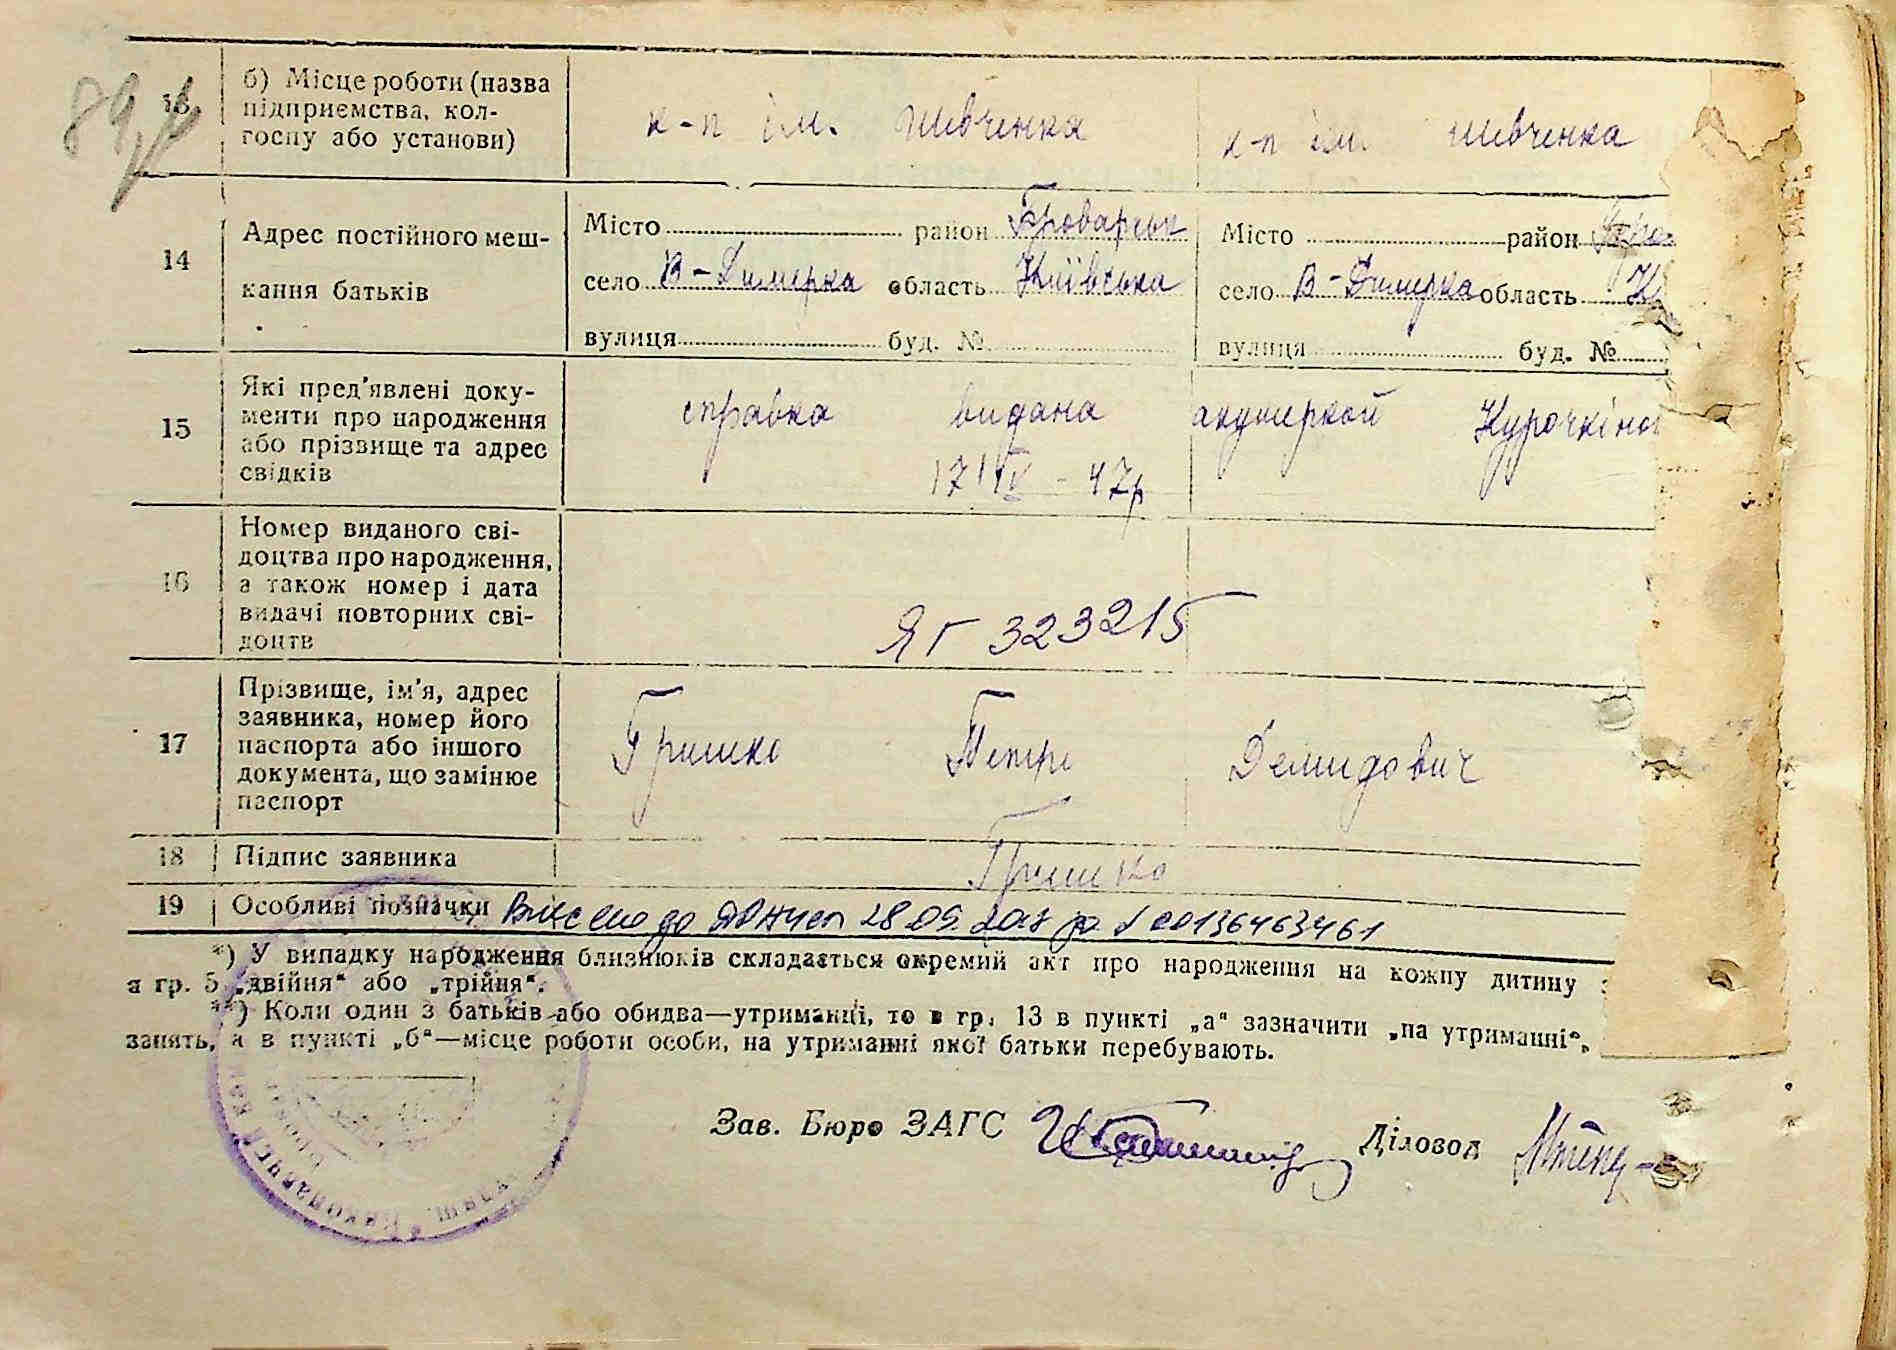 89
13 б) Місце роботи (назва
підприємства, кол-
госпу або установи)
к-п ім. Шевченка к-п ім. Шевченка
14 Адрес постійного меш-
кання батьків
Місто район Броварськ Місто район Бро
село В-Димерка область Київська село В-Димерка область К
вулиця буд. № вулиця буд. №
15 Які пред'явлені доку-
менти про народження
або прізвище та адрес
свідків
справка видана акушеркой Курочкіно
17/IV - 47р
16 Номер виданого сві-
доцтва про народження,
а також номер і дата
видачі повторних сві-
доцтв
ЯГ 323215
17 Прізвище, ім'я, адрес
заявника, номер його
паспорта або іншого
документа, що замінює
паспорт
Гришко Петро Демидович
18 Підпис заявника Гришко
19 Особливі позначки Внесено до 28.09.2017 р. 00136463461
*) У випадку народження близнюків складається окремий акт про народження на кожну дитину
а гр. 5 „двійня“ або „трійня“.
**) Коли один з батьків або обидва—утриманці, то в гр. 13 в пункті „а“ зазначити „на утриманні“,
занять, а в пункті „б“—місце роботи особи, на утриманні якої батьки перебувають.
Зав. Бюро ЗАГС Діловод